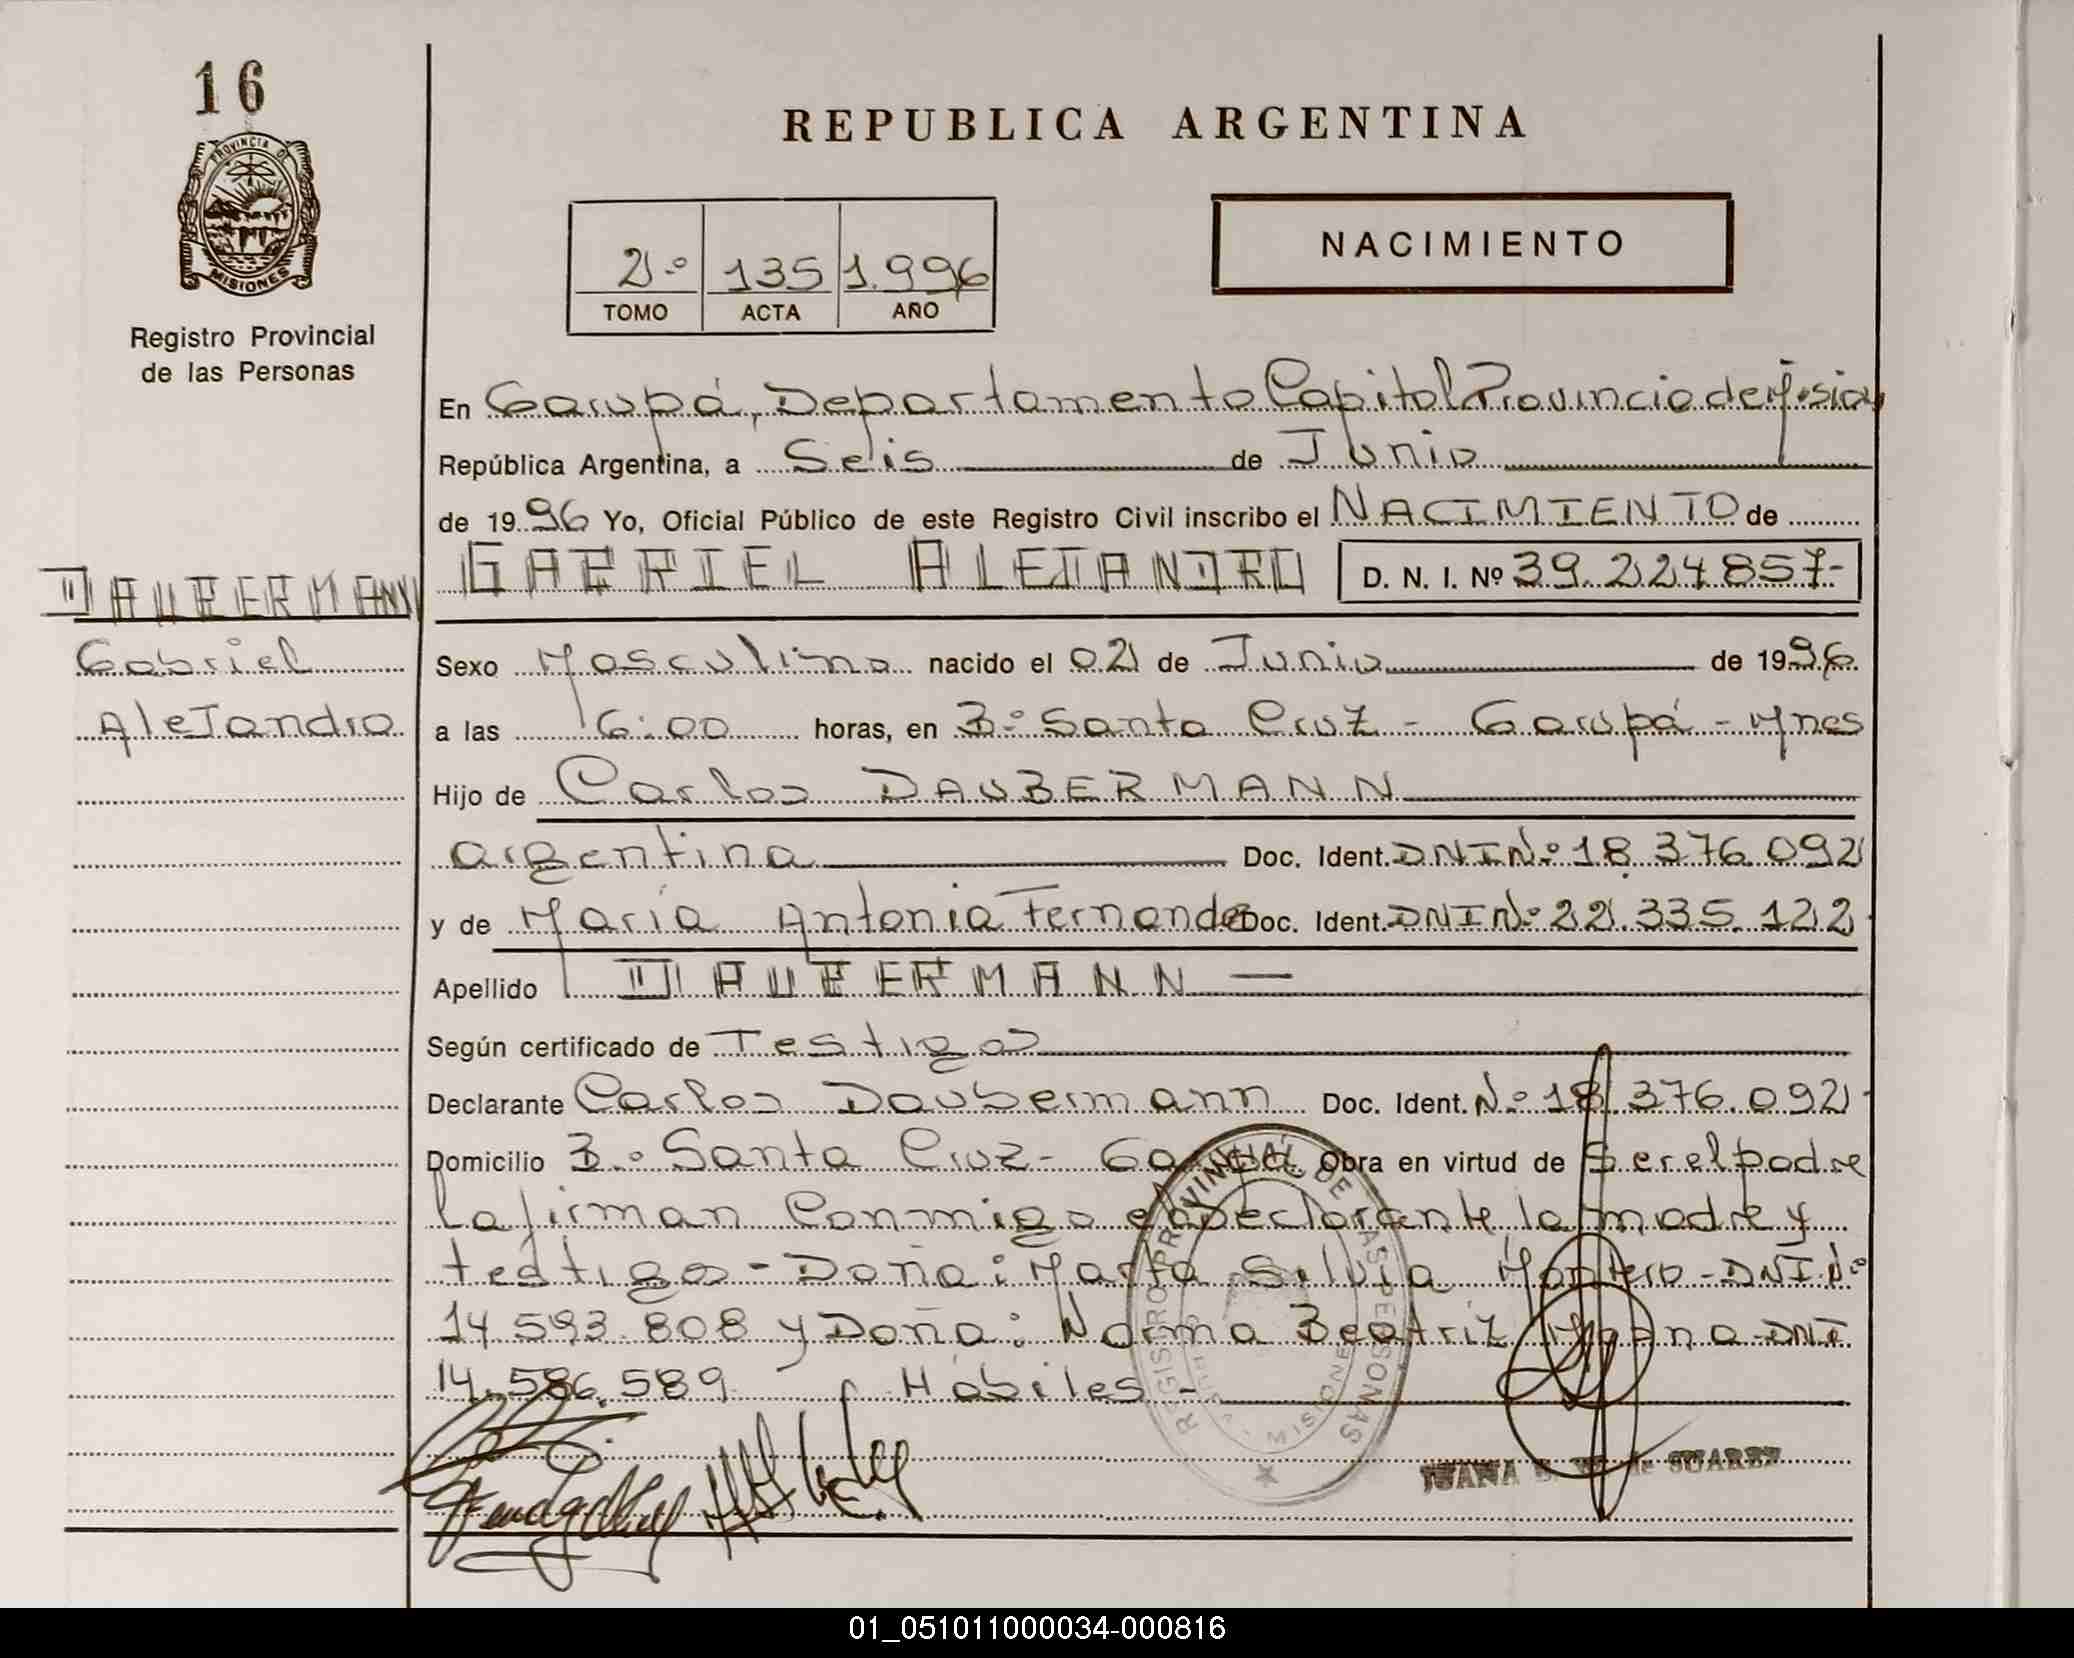 16
REPUBLICA ARGENTINA
PROVINCIA DE
MISIONES
Registro Provincial
de las Personas
2º 135 1.996
TOMO ACTA AÑO
NACIMIENTO
En Garupá, Departamento Capital Provincia de Misiones
República Argentina, a Seis de Junio
de 1996 Yo, Oficial Público de este Registro Civil inscribo el NACIMIENTO de
GABRIEL ALEJANDRO D. N. I. Nº 39.224.857-
DAUBERMANN
Gabriel
Alejandro
Sexo Masculino nacido el 02 de Junio de 1996
a las 6:00 horas, en Bº Santa Cruz - Garupá - Mnes
Hijo de Carlos DAUBERMANN
argentina Doc. Ident. DNI Nº 18.376.092
y de María Antonia Fernandez Doc. Ident. DNI Nº 22.335.122
Apellido DAUBERMANN —
Según certificado de Testigos
Declarante Carlos Daubermann Doc. Ident. Nº 18.376.092-
Domicilio Bº Santa Cruz - Garupá Obra en virtud de Ser el padre
la firman Conmigo el Declarante la madre y
testigos - Doña: Marta Silvia Montero - DNI Nº
14.593.808 y Doña: Norma Beatriz DNI
14.586.589 Hábiles -
REGISTRO PROVINCIAL DE LAS PERSONAS
MISIONES
JUANA de SUAREZ
01_051011000034-000816